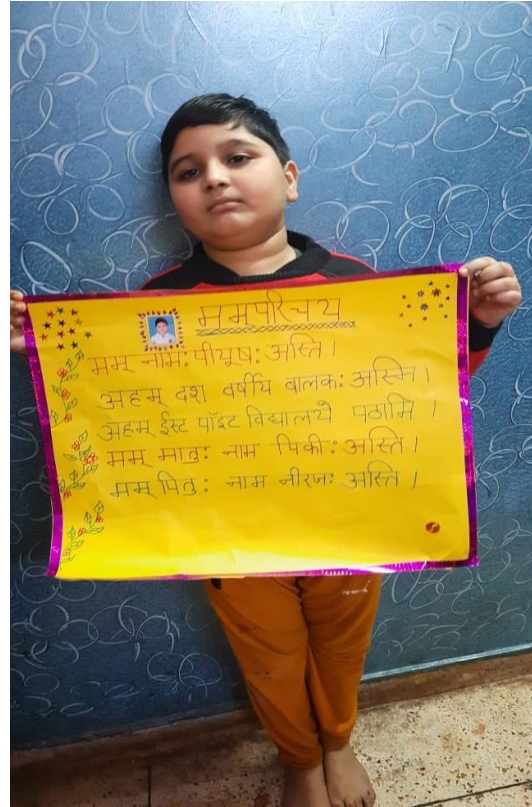 ममपरिचय
मम् नामः पीयूषः अस्ति।
अहम् दश वर्षीय बालकः अस्मि।
अहम् ईस्ट पॉइंट विद्यालये पठामि।
मम् मातुः नाम पिंकीः अस्ति।
मम् पितुः नाम नीरजः अस्ति।